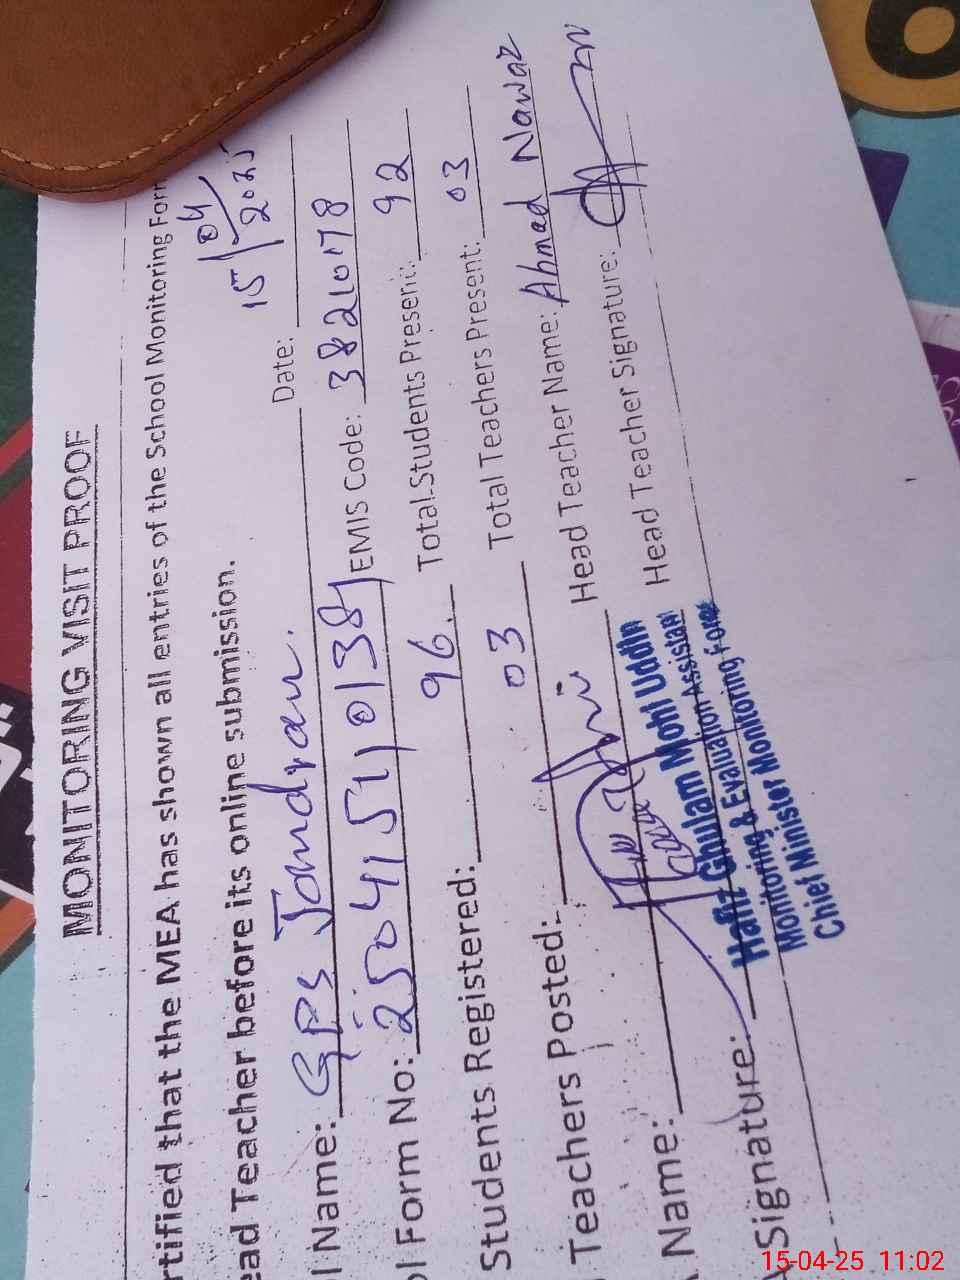 MONITORING VISIT PROOF
rtified that the MEA has shown all entries of the School Monitoring Form
ead Teacher before its online submission.
l Name: GPS Jandran. Date: 15/04/2025
l Form No: EMIS Code: 38210178
Students Registered: 96 Total Students Present: 92
Teachers Posted: 03 Total Teachers Present: 03
Name: Head Teacher Name: Ahmad Nawaz
Signature: Head Teacher Signature:
Hafiz Ghulam Mohi Uddin
Monitoring & Evaluation Assistant
Chief Minister Monitoring Force
15-04-25 11:02